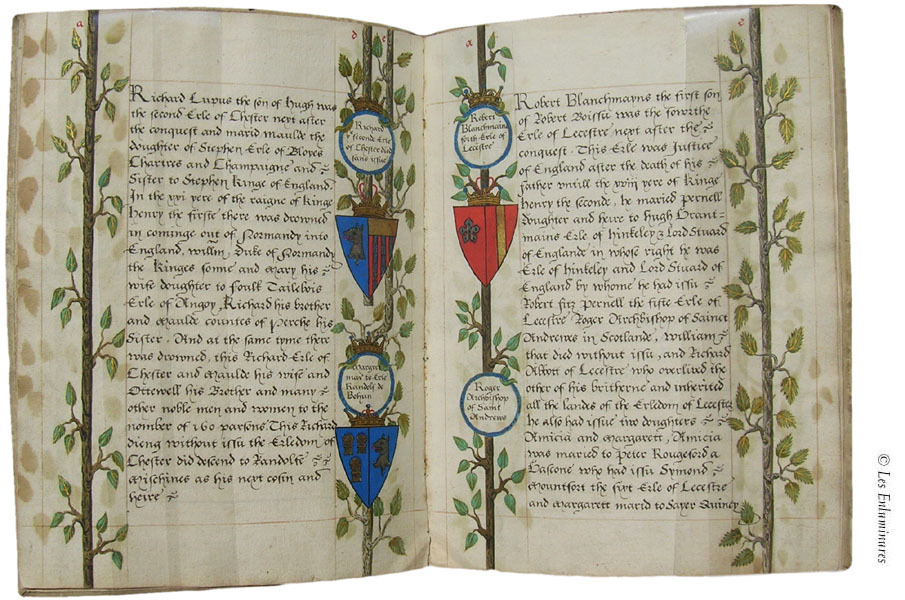 a
Richard Lupus the son of Hugh was
the second Erle of Chester next after
the conquest and marid maulde the
doughter of Stephen Erle of Bloyes
Chartres and Champaigne and
Sister to Stephen Kinge of England
In the xxi yere of the raigne of Kinge
Henry the firste there was drowned
in cominge out of Normandy into
England willm Duke of Normandy
the Kinges sonne and Mary his
wife doughter to foulk Tailebois
Erle of Angoy, Richard his brother
and Maulde countes of Perche his
Sister. And at the same tyme there
was drowned, this Richard Erle of
Chester and Maulde his wife and
Ottewell his Brother and many
other noble men and women to the
nomber of 160 parsons. This Richard
dieng without issu the Erledom of
Chester did descend to Randolfe
Mischines as his next cosin and
heire
d
c
Richard
seconde Erle
of Chester died
sans issue
Margret
mar to Erle
Randolf de
Bohun
a
e
Robert
Blanchmains
fourth Erle of
Lecestre
Roger
Archbishop
of Saint
Andrews
Robert Blanchmayns the first son
of Robert Boissu was the fowrthe
Erle of Lecestre next after the
conquest. This Erle was Justice
of England after the death of his
father untill the xviii yere of Kinge
Henry the seconde, he maried Pernell
doughter and heire to Hugh Grant-
mains Erle of Hinkeley & Lord Stuard
of Englande in whose right he was
Erle of Hinkeley and Lord Stuard of
England by whome he had issu
Robert fitz Pernell the fifte Erle of
Lecestre Roger Archbishop of Sainct
Andrewes in Scotland, William
that died without issu, and Richard
Abbott of Lecestre who overlived the
other of his britherne and inherited
all the landes of the Erledom of Lecester
he also had issue two doughters
Amicia and Margarett, Amicia
was maried to Peter Rougeford a
Gascone who had issu Symond
Mountfort the sixt Erle of Lecestre
and Margarett marid to Sayer Quincy
© Les Enluminures